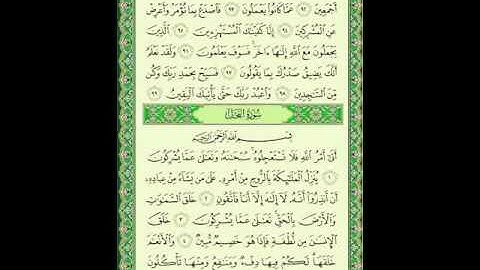 أَجْمَعِينَ ٩٢ عَمَّا كَانُوا۟ يَعْمَلُونَ ٩٣ فَٱصْدَعْ بِمَا تُؤْمَرُ وَأَعْرِضْ
عَنِ ٱلْمُشْرِكِينَ ٩٤ إِنَّا كَفَيْنَٰكَ ٱلْمُسْتَهْزِءِينَ ٩٥ ٱلَّذِينَ
يَجْعَلُونَ مَعَ ٱللَّهِ إِلَٰهًا ءَاخَرَ فَسَوْفَ يَعْلَمُونَ ٩٦ وَلَقَدْ نَعْلَمُ
أَنَّكَ يَضِيقُ صَدْرُكَ بِمَا يَقُولُونَ ٩٧ فَسَبِّحْ بِحَمْدِ رَبِّكَ وَكُن
مِّنَ ٱلسَّٰجِدِينَ ٩٨ وَٱعْبُدْ رَبَّكَ حَتَّىٰ يَأْتِيَكَ ٱلْيَقِينُ ٩٩
سُورَةُ النَّحْلِ
بِسْمِ ٱللَّهِ ٱلرَّحْمَٰنِ ٱلرَّحِيمِ
أَتَىٰٓ أَمْرُ ٱللَّهِ فَلَا تَسْتَعْجِلُوهُ سُبْحَٰنَهُۥ وَتَعَٰلَىٰ عَمَّا يُشْرِكُونَ
١ يُنَزِّلُ ٱلْمَلَٰٓئِكَةَ بِٱلرُّوحِ مِنْ أَمْرِهِۦ عَلَىٰ مَن يَشَآءُ مِنْ عِبَادِهِۦٓ
أَنْ أَنذِرُوٓا۟ أَنَّهُۥ لَآ إِلَٰهَ إِلَّآ أَنَا۠ فَٱتَّقُونِ ٢ خَلَقَ ٱلسَّمَٰوَٰتِ
وَٱلْأَرْضَ بِٱلْحَقِّ تَعَٰلَىٰ عَمَّا يُشْرِكُونَ ٣ خَلَقَ
ٱلْإِنسَٰنَ مِن نُّطْفَةٍ فَإِذَا هُوَ خَصِيمٌ مُّبِينٌ ٤ وَٱلْأَنْعَٰمَ
خَلَقَهَا لَكُمْ فِيهَا دِفْءٌ وَمَنَٰفِعُ وَمِنْهَا تَأْكُلُونَ